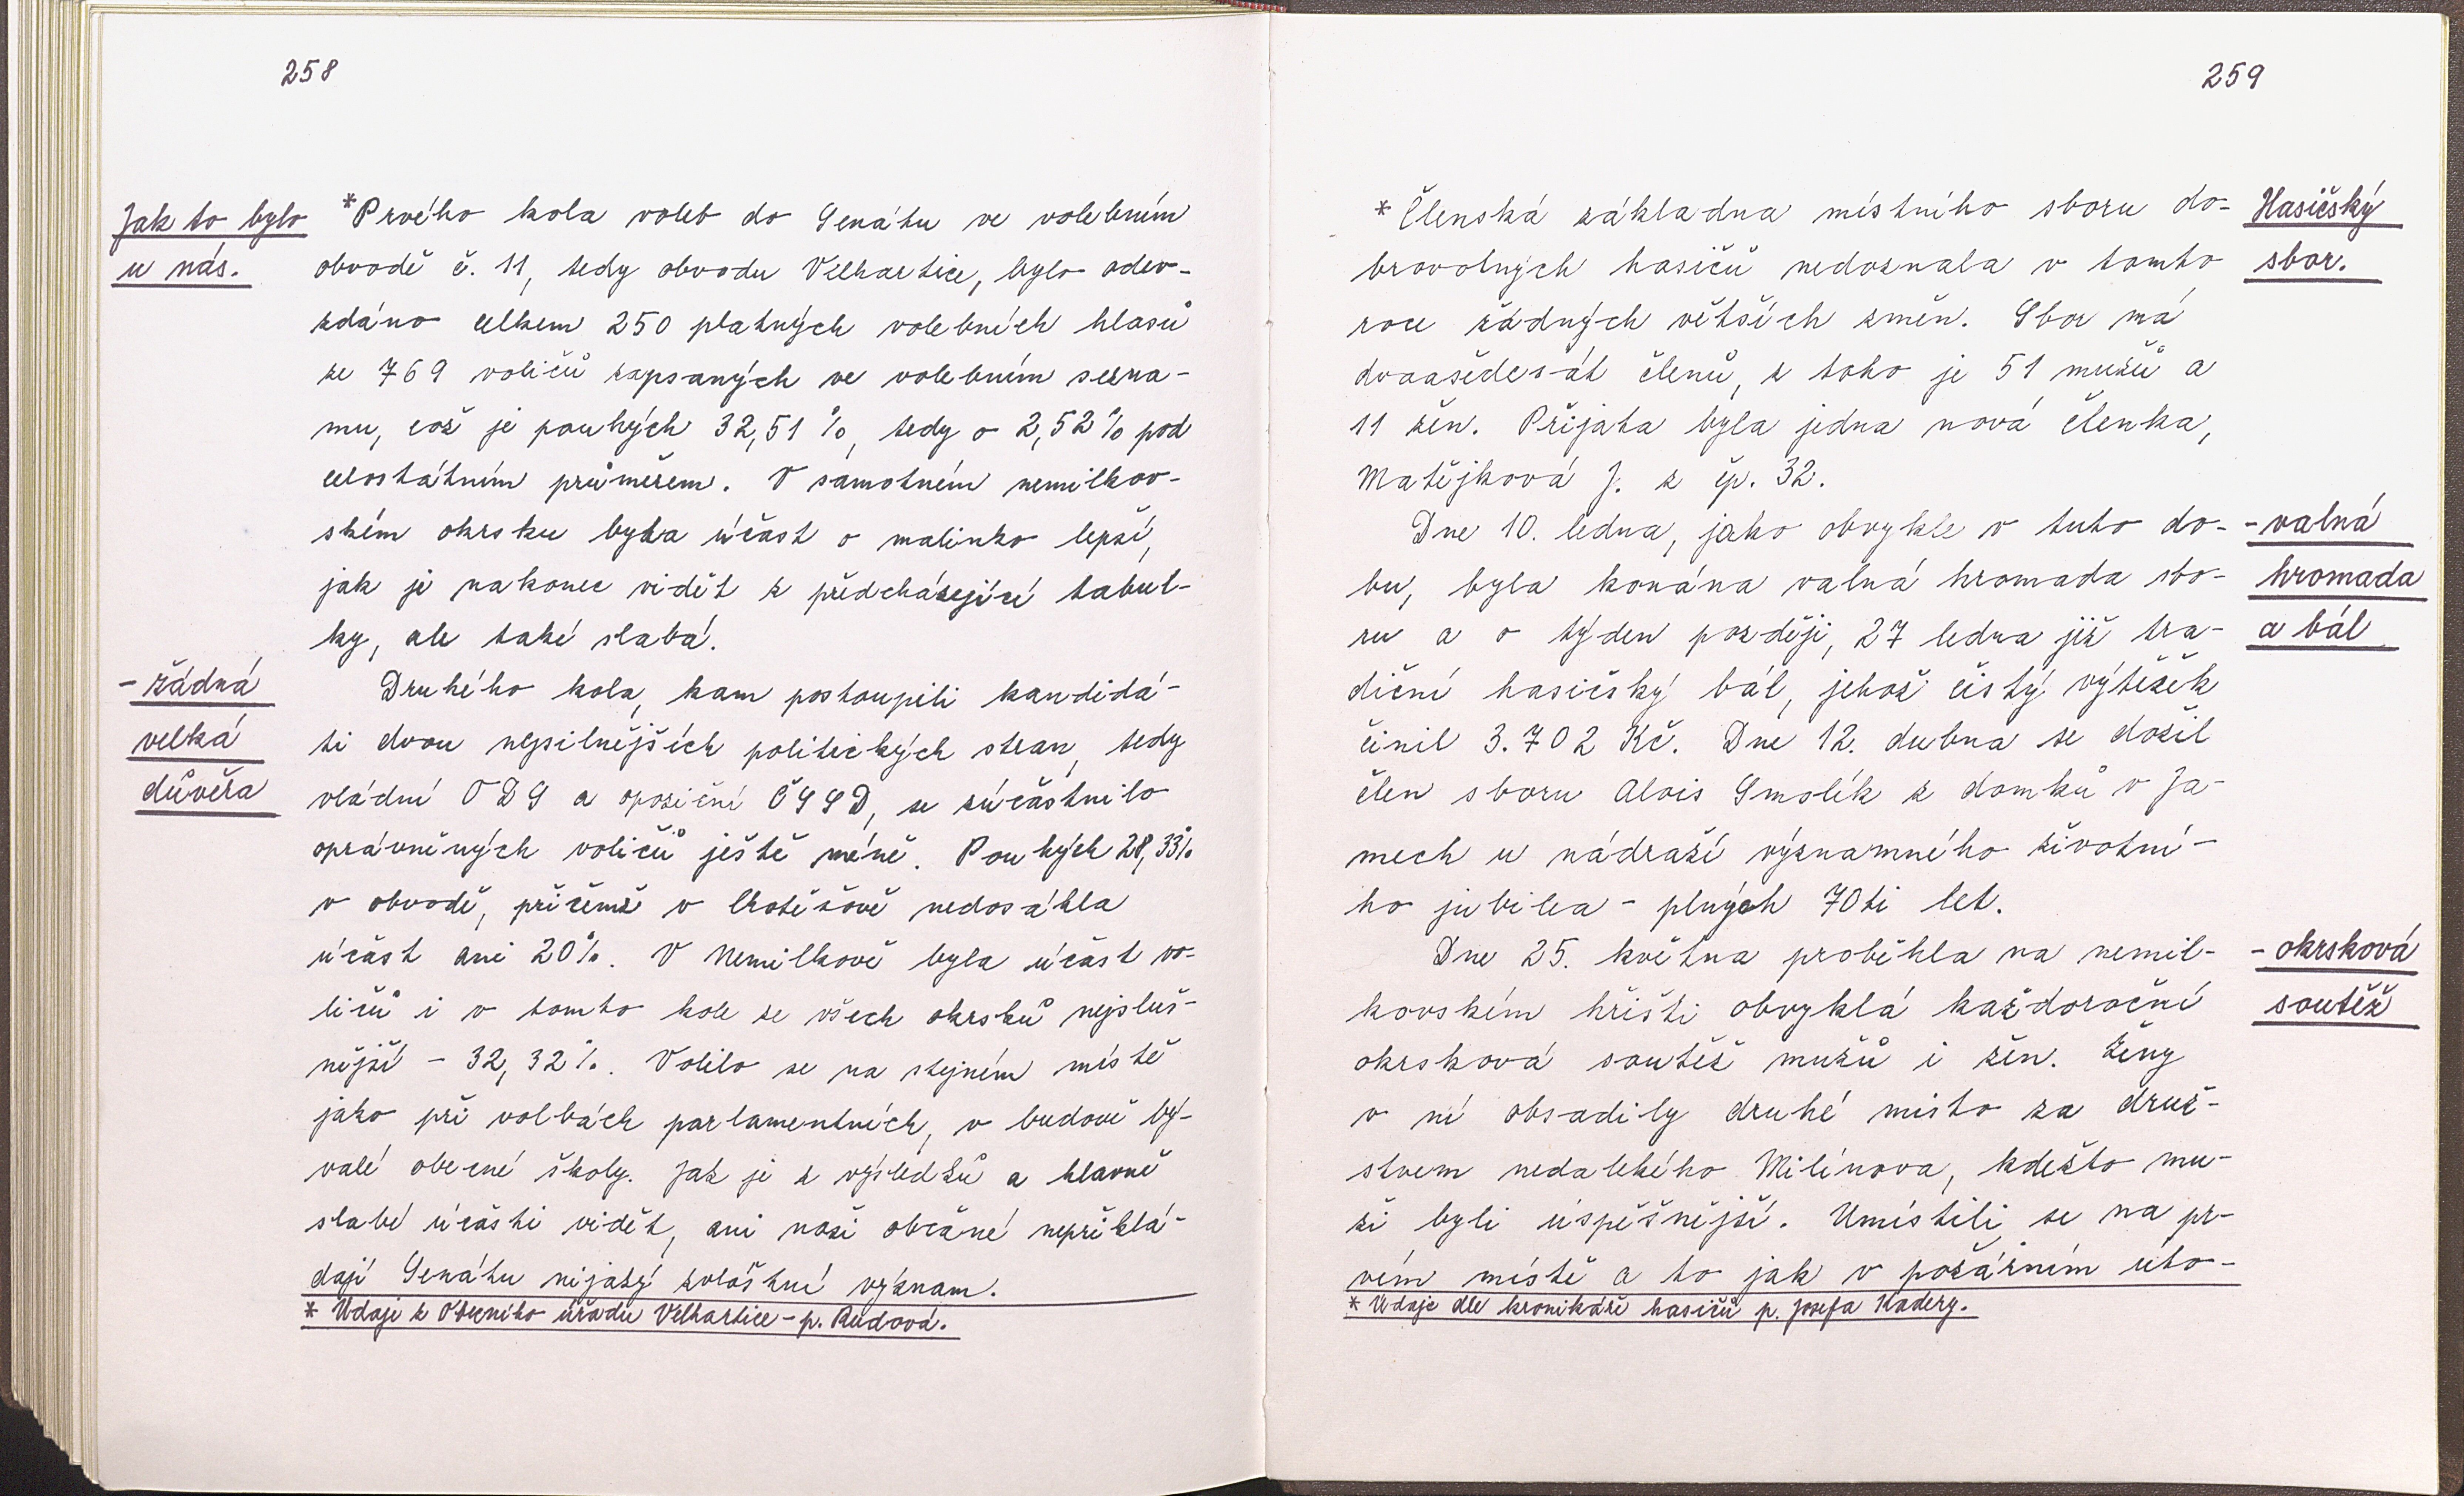 258
Jak to bylo
u nás.
*Prvého kola voleb do Senátu ve volebním
obvodě č. 11, tedy obvodu Velhartice, bylo odev-
zdáno celkem 250 platných volebních hlasů
ze 769 voličů zapsaných ve volebním sezna-
mu, což je pouhých 32,51 %, tedy o 2,52 % pod
celostátním průměrem. V samotném nemilkov-
ském okrsku byla účast o malinko lepší,
jak je nakonec vidět z předcházející tabul-
ky, ale také slabá.
- žádná
velká
důvěra
Druhého kola, kam postoupili kandidá-
ti dvou nejsilnějších politických stran, tedy
vládní ODS a opoziční ČSSD, se zúčastnilo
oprávněných voličů ještě méně. Pouhých 28,33%
v obvodě, přičemž v Chotěšově nedosáhla
účast ani 20%. V Nemilkově byla účast vo-
ličů i v tomto kole ze všech okrsků nejsluš-
nější - 32,32%. Volilo se na stejném místě
jako při volbách parlamentních, v budově bý-
valé obecné školy. Jak je z výsledků a hlavně
slabé účasti vidět, ani naši občané nepřiklá-
dají Senátu nijaký zvláštní význam.
* Údaje z Obecního úřadu Velhartice - p. Rudová.
259
* Členská základna místního sboru do-
brovolných hasičů nedoznala v tomto
roce žádných větších změn. Sbor má
dvaašedesát členů, z toho je 51 mužů a
11 žen. Přijata byla jedna nová členka,
Matějková J. z čp. 32.
Hasičský
sbor.
Dne 10. ledna, jako obvykle v tuto do-
bu, byla konána valná hromada sbo-
ru a o týden později, 27 ledna již tra-
diční hasičský bál, jehož čistý výtěžek
činil 3.702 Kč. Dne 12. dubna se dožil
člen sboru Alois Smolík z domků v Ja-
mech u nádraží významného životní-
ho jubilea - plných 70ti let.
- valná
hromada
a bál
Dne 25. května proběhla na nemil-
kovském hřišti obvyklá každoroční
okrsková soutěž mužů i žen. Ženy
v ní obsadily druhé místo za druž-
stvem nedalekého Milínova, kdežto mu-
ži byli úspěšnější. Umístili se na pr-
vém místě a to jak v požárním úto-
- okrsková
soutěž
* Údaje dle kronikáře hasičů p. Josefa Kadery.